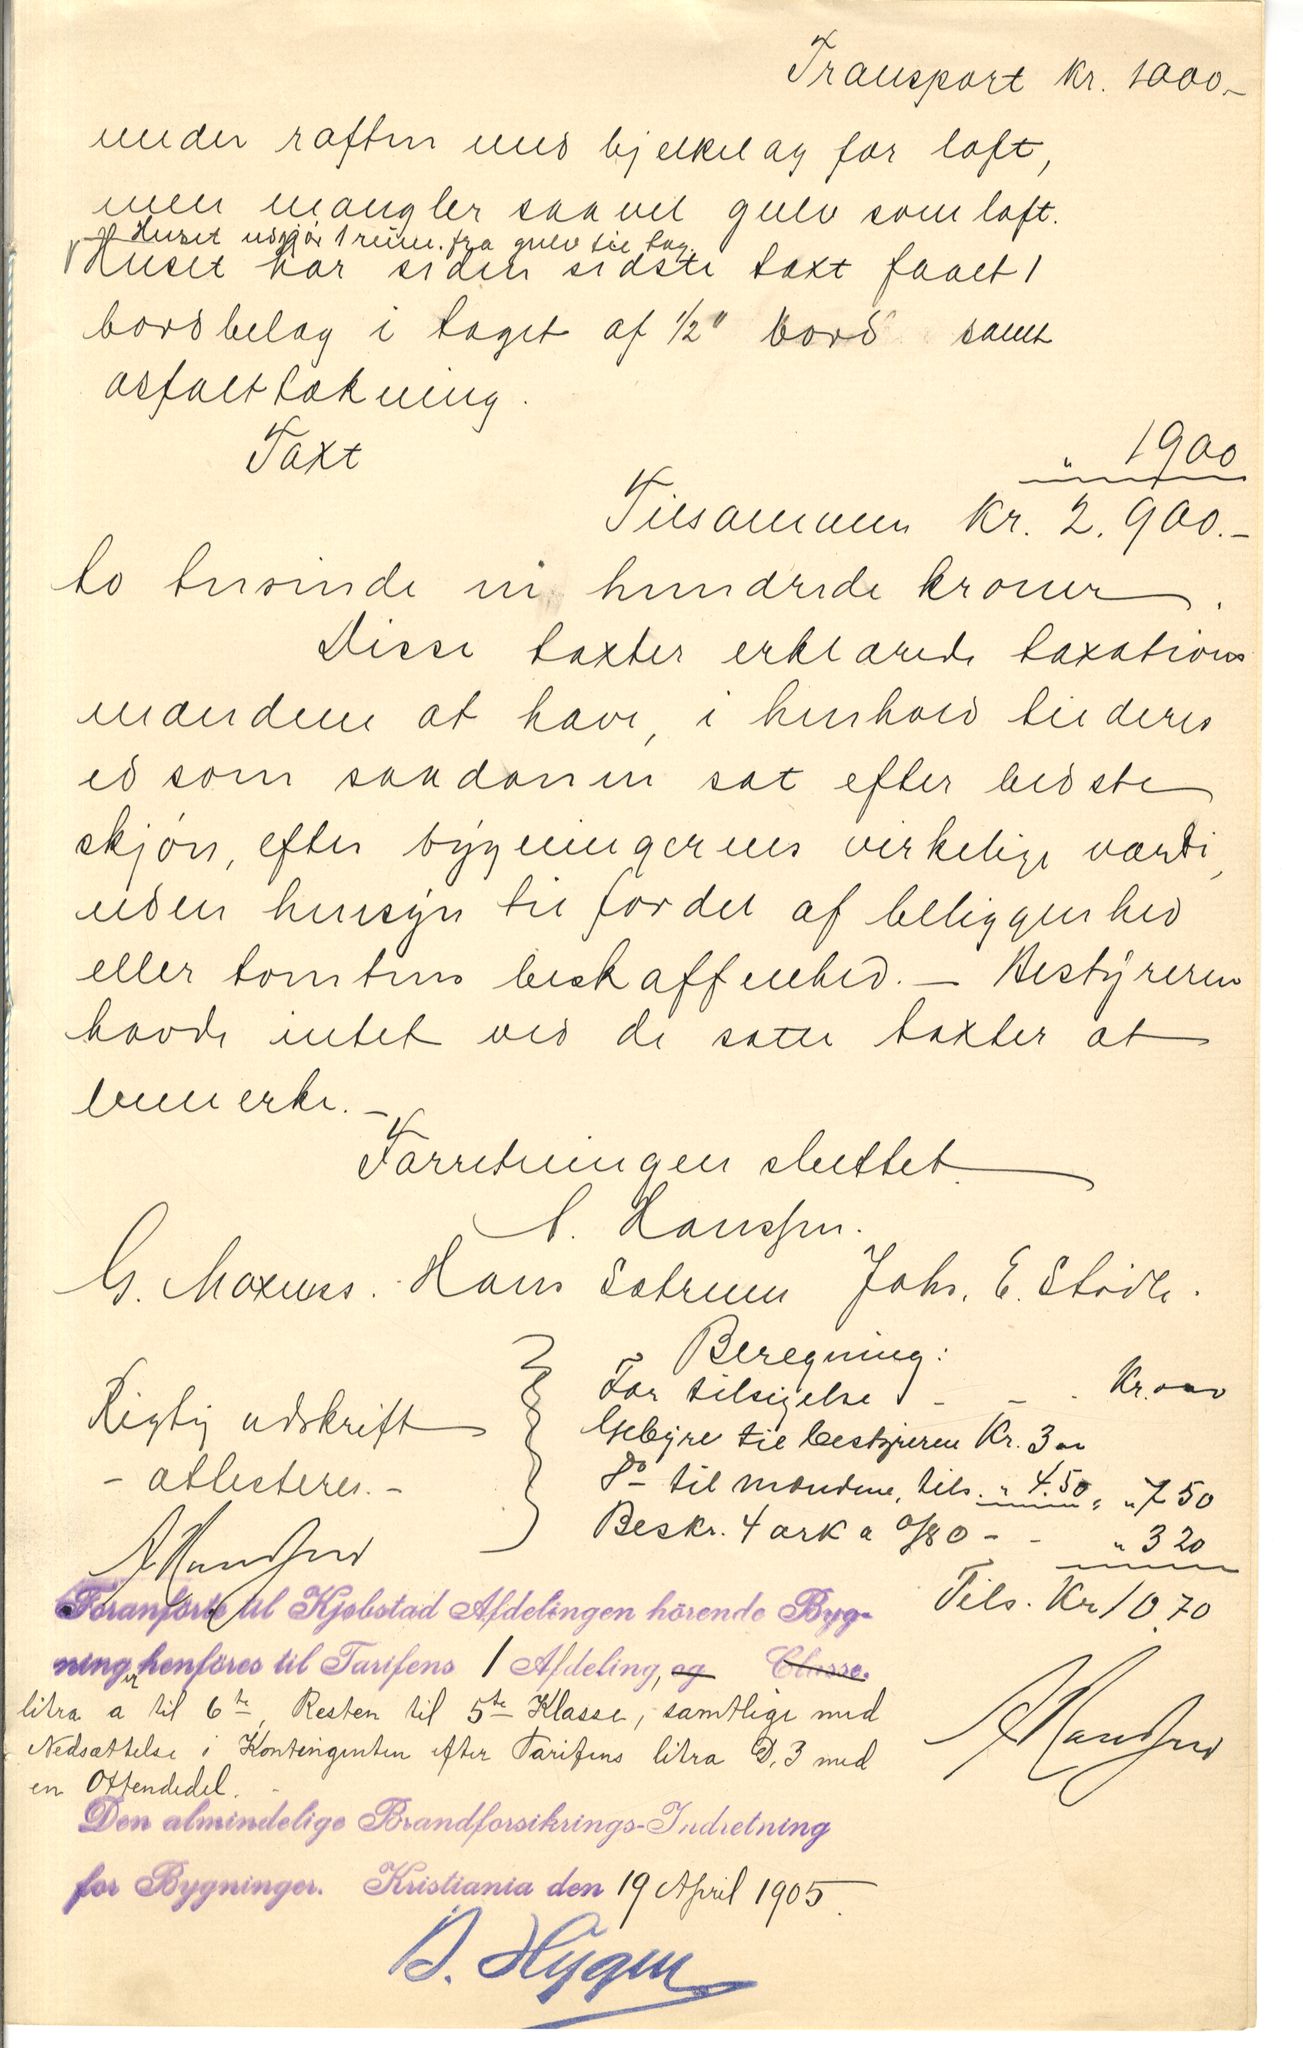 Transport kr. 1000.-
under raften med bjelkelag for loft,
men mangler saavel gulv som loft.
Huset udgjør 1 rum. fra gulv til tag.
Huset har siden sidste taxt faaet 1
bordbelag i taget af 1/2" bord samt
asfalttækning.
Taxt " 1900
Tilsammen Kr. 2.900.-
to tusinde ni hundrede kroner.
Disse taxter erklærede taxations
mændene at have, i henhold til deres
ed som saadanne sat efter bedste
skjøn, efter bygningernes virkelige værdi,
uden hensyn til fordel af beliggenhed
eller tomtens beskaffenhed. - Bestyreren
havde intet ved de satte taxter at
bemerke. -
Forretningen sluttet
A. Hanssen.
G. Hans Sætrum Johs. E. Stødle.
Beregning:
For tilsigelse - - - Kr. o o o
Rigtig udskrift
Gebyre til bestyreren Kr. 3 oo
- attesteres. -
Do til mændene, tils. " 4.50 = " 7 50
Beskr. 4 ark a 0/80 - - " 3 20
Tils. Kr 10.70
Foranførte til Kjøbstad Afdelingen hörende Byg-
ninger henföres til Tarifens 1 Afdeling, og Classe.
litra a til 6te, Resten til 5te Klasse, samtlige med
Nedsættelse i Kontingenten efter Tarifens litra D. 3 med
en Ottendedel. -
Den almindelige Brandforsikrings-Indretning
for Bygninger. Kristiania den 19 April 1905.
B. Hygen